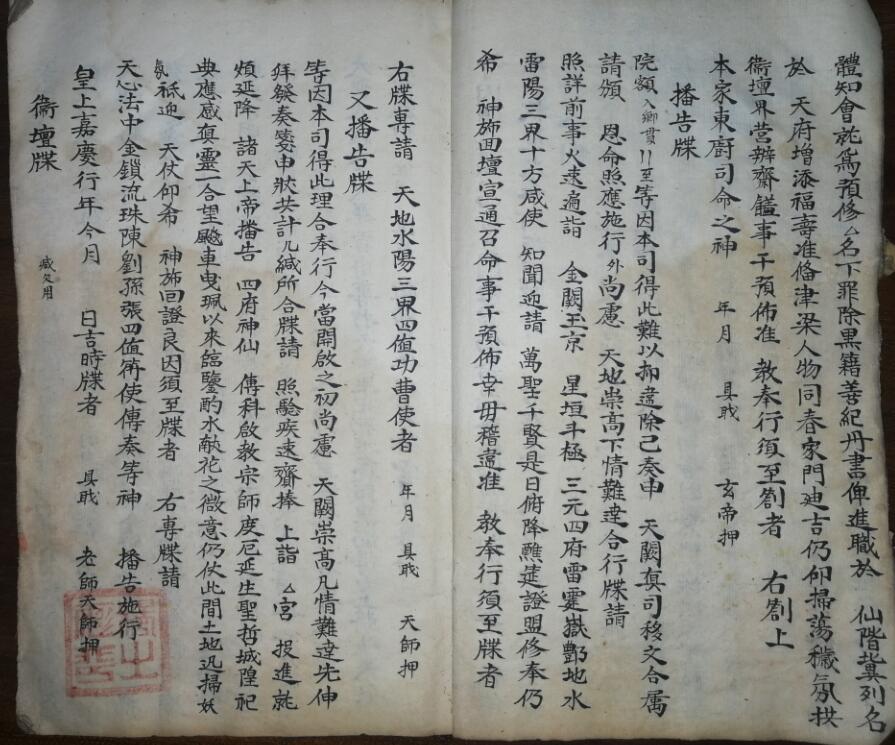 體知會就爲預修厶名下罪除黑籍善紀丹書俾進職於 仙階冀列名
於 天府增添福壽准俻津梁人物同春家門迪吉仍仰掃蕩穢氛拱
衛壇界營辦齋饈事干預佈准 教奉行須至劄者 右劄上
本家東廚司命之神 年月 具戝 玄帝押
播告牒
院額入鄉貫〢至等因本司得此難以抑違除已奏申 天闕眞司移文合属
請頒 恩命照應施行外尚慮 天地崇高下情難達合行牒請
照詳前事火速遍詣 金闕玉京 星垣斗極 三元四府雷霆嶽酆地水
雷陽三界十方咸使 知聞迎請 萬聖千賢是日俯降醮筵證盟修奉仍
希 神旆囬壇宣通召命事干預佈幸毋稽違准 教奉行須至牒者
右牒專請 天地水陽三界四值功曹使者 年月 具戝 天師押
又播告牒
等因本司得此理合奉行今當開啟之初尚慮 天闕崇高凡情難達先伸
拜發奏箋申狀共計几緘所合牒請 照驗疾速賫捧 上詣 厶宮 投進就
煩延降 諸天上帝播告 四府神仙 傳科啟教宗師度厄延生聖哲城隍祀
典應感眞靈一合望飈車曳珮以來臨鑒酌水献花之微意仍仗此間土地迅掃妖
氛祇迎 天仗仰希 神旆回證良因須至牒者 右專牒請
天心法中金鎖流珠陳劉孫張四值符使傳奏等神 播告施行
皇上嘉慶行年今月 日吉時牒者 具戝 老師天師押
衛壇牒